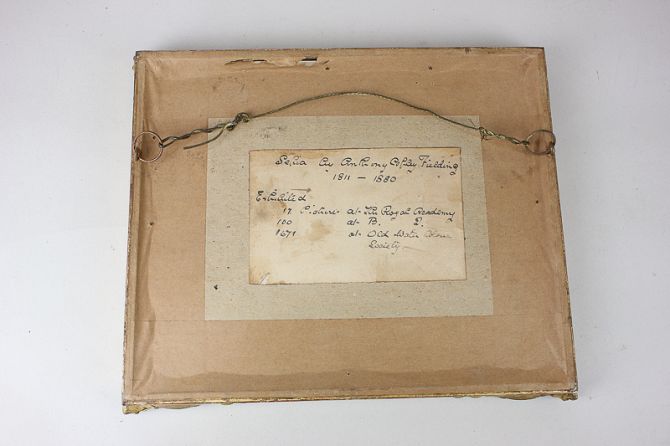 Sepia by Anthony Copley Fielding
1811 — 1880
Exhibited
17 Pictures at The Royal Academy
100 at B.
1671 at Old Water Colour
Society